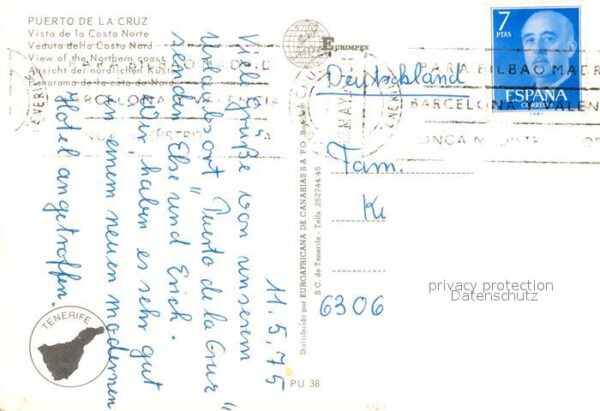 PUERTO DE LA CRUZ
Vista de la Costa Norte
Veduta della Costa Nord
View of the Northern coast
Ansicht der nördlichen Küste
Panorama de la côte du Nord
EURIMPEX
7
PTAS
ESPAÑA
CORREOS
PARA BILBAO MADR
BARCELONA VALEN
Deutschland
Fam.
Ki
6306
11.5.75
Viele Grüße von unserem
Urlaubsort "Puerto de la Cruz"
senden Else und Erich.
Wir haben es sehr gut
in einem neuen modernen
Hotel angetroffen.
Distribuido por EUROAFRICANA DE CANARIAS S.A. P.O.
S C. de Tenerife - Telfs. 252744-45
TENERIFE
PU 38
privacy protection
Datenschutz